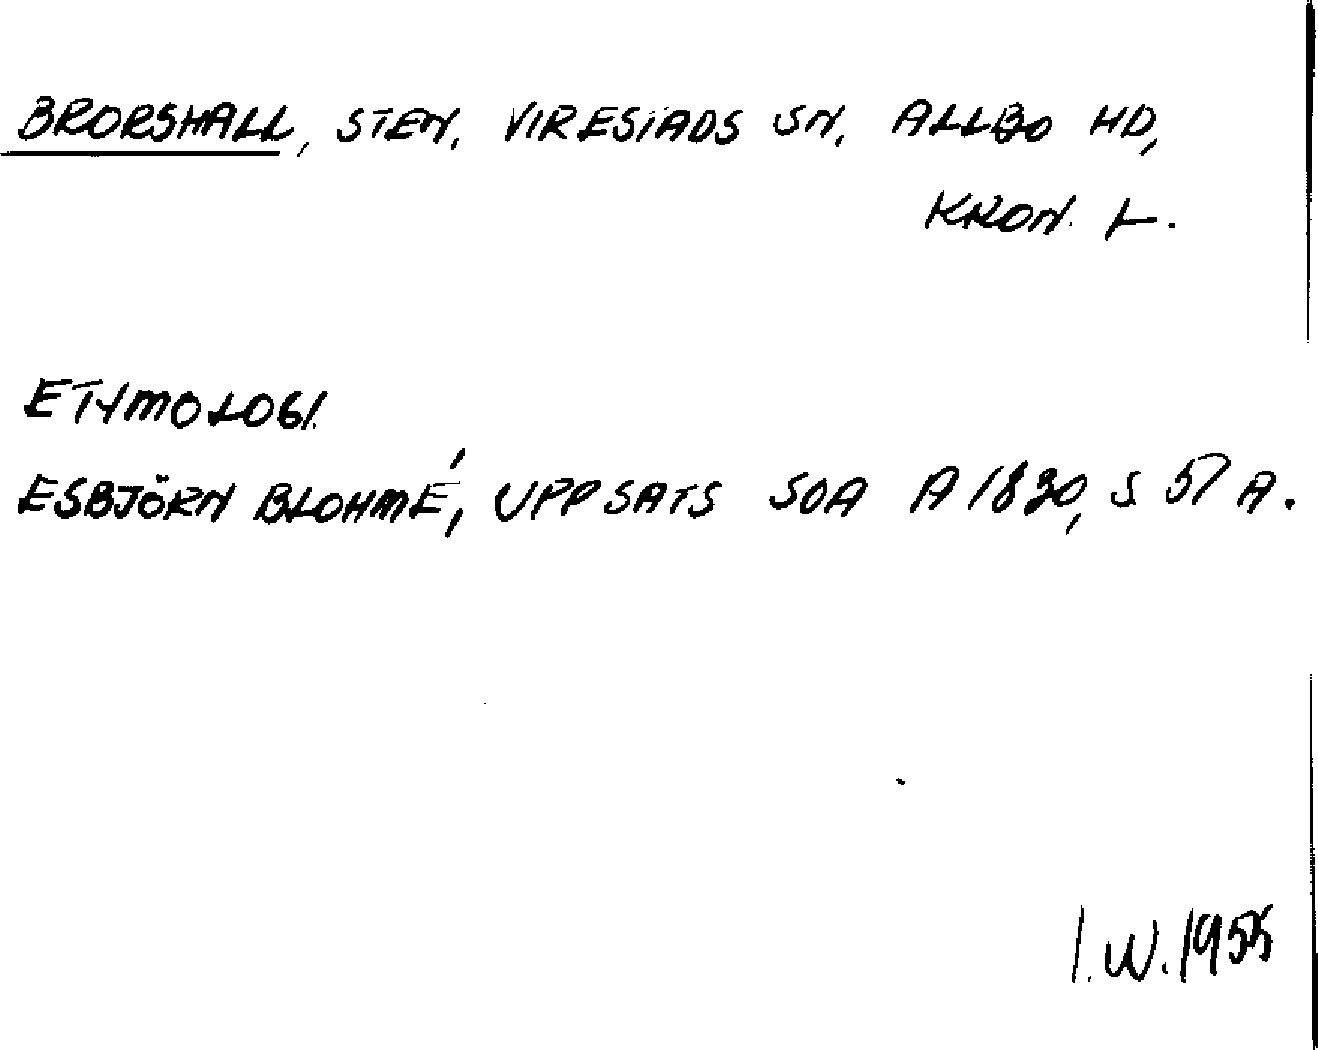 BRORSHALL, STEN. VIRESTADS SN. ALLBO HD,
KRON. L.
ETYMOLOGI.
ESBJÖRN BLOHMÉ, UPPSATS SOA A 1830, S 57 A.
I.W. 1955